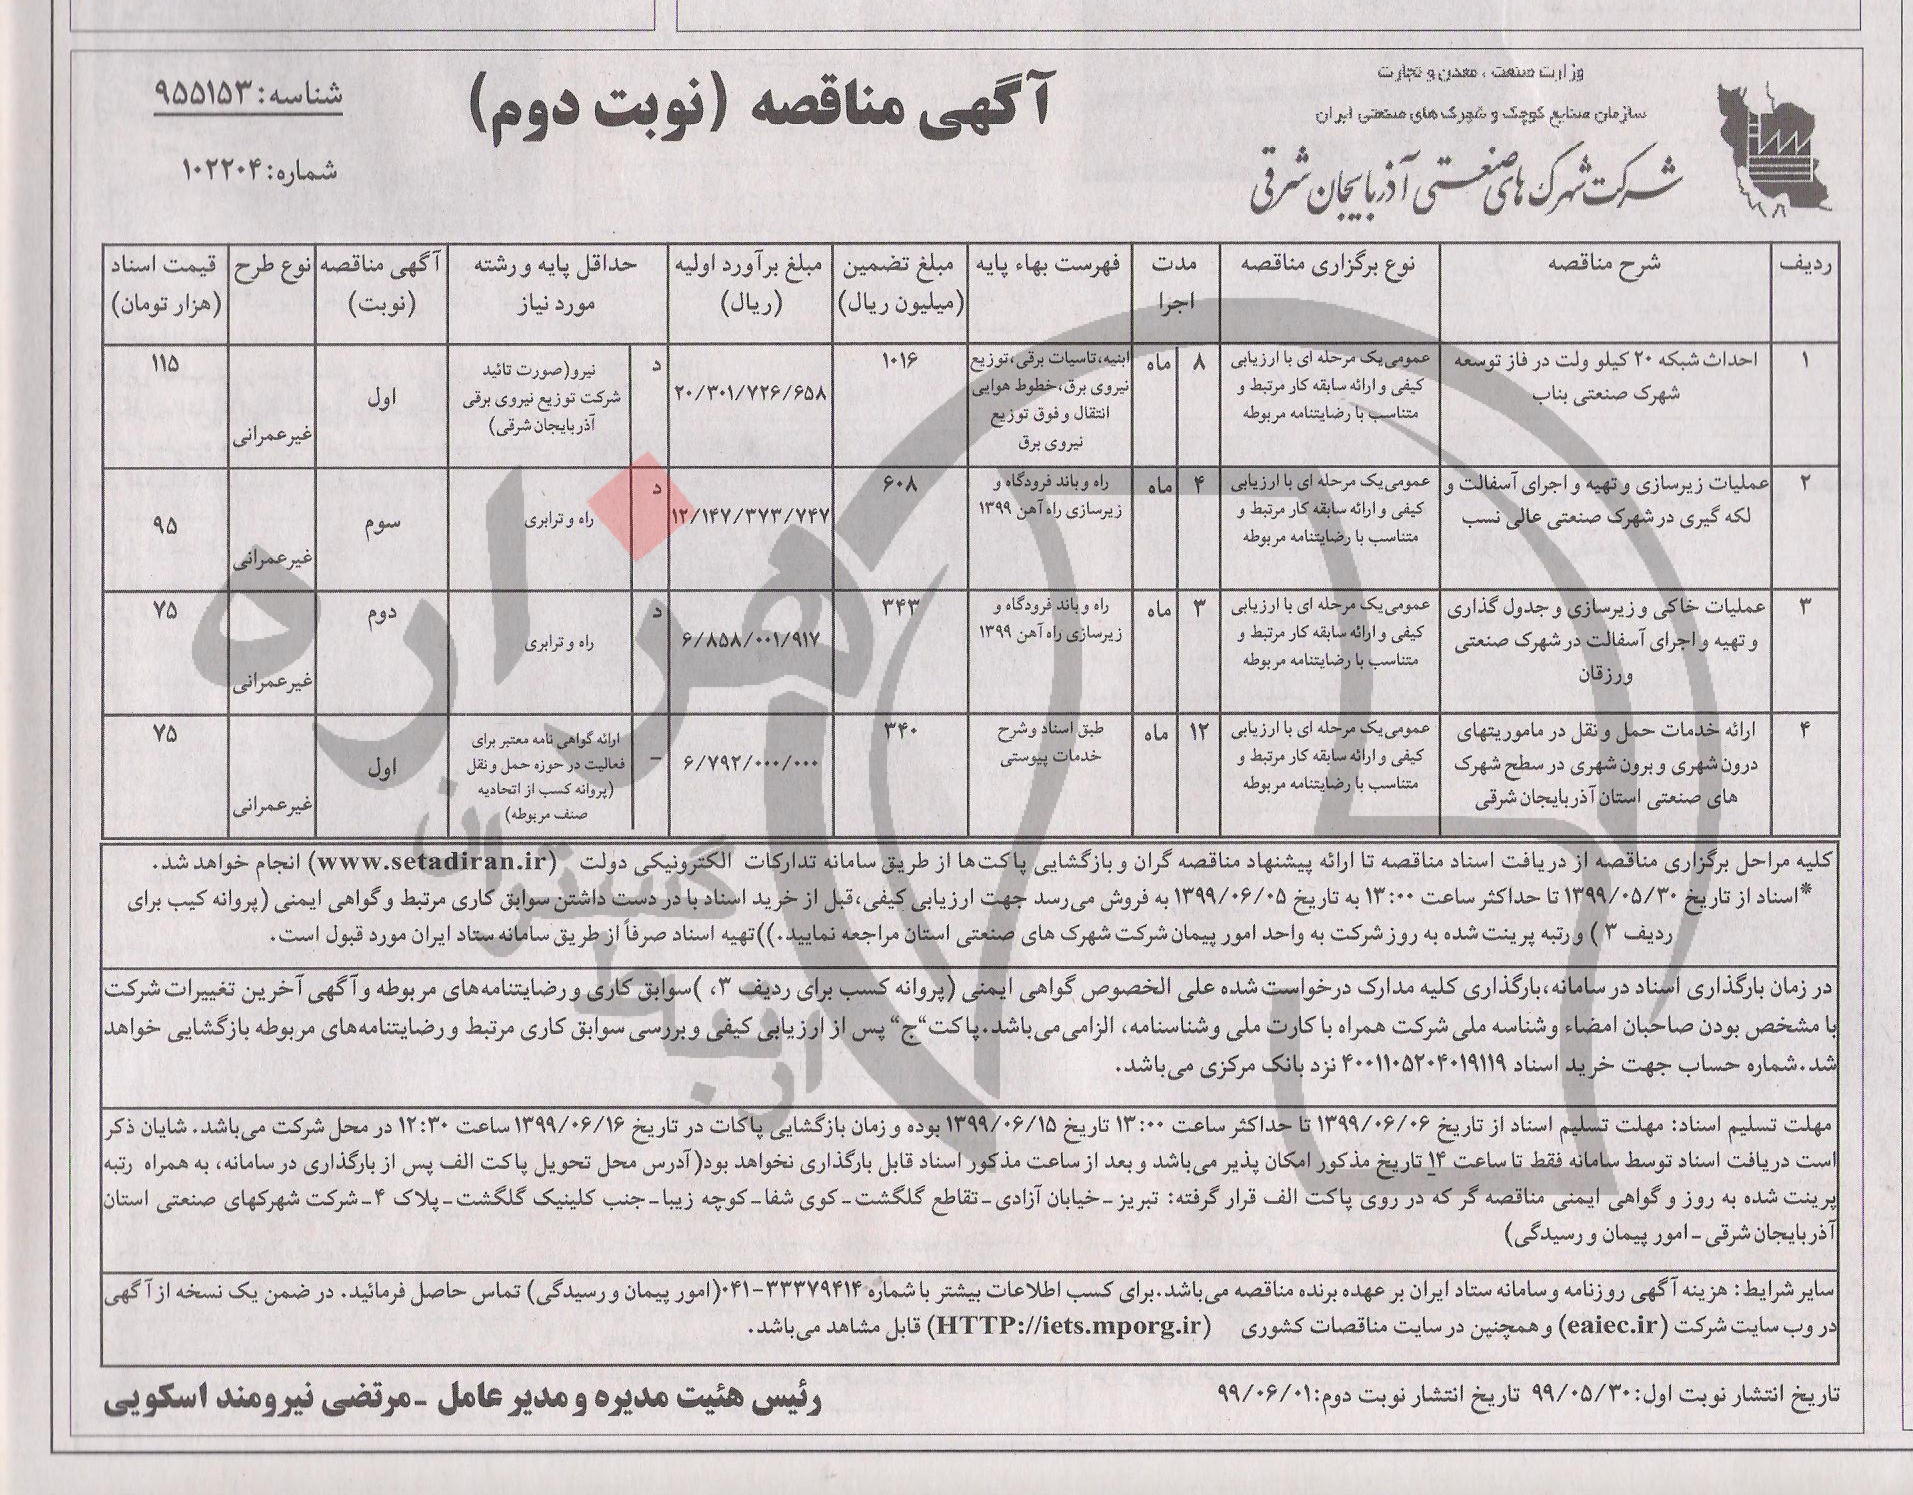 وزارت صنعت، معدن و تجارت
سازمان صنایع کوچک و شهرک های صنعتی ایران
شرکت شهرک های صنعتی آذربایجان شرقی
آگهی مناقصه (نوبت دوم)
شناسه: ۹۵۵۱۵۳
شماره: ۱۰۲۲۰۴
ردیف
شرح مناقصه
نوع برگزاری مناقصه
مدت
اجرا
فهرست بهاء پایه
مبلغ تضمین
(میلیون ریال)
مبلغ برآورد اولیه
(ریال)
حداقل پایه و رشته
مورد نیاز
آگهی مناقصه
(نوبت)
نوع طرح
قیمت اسناد
(هزار تومان)
۱
احداث شبکه ۲۰ کیلو ولت در فاز توسعه
شهرک صنعتی بناب
عمومی یک مرحله ای با ارزیابی
کیفی و ارائه سابقه کار مرتبط و
متناسب با رضایتنامه مربوطه
۸
ماه
ابنیه، تاسیات برقی، توزیع
نیروی برق، خطوط هوایی
انتقال و فوق توزیع
نیروی برق
۱۰۱۶
۲۰/۳۰۱/۷۲۶/۶۵۸
د
نیرو(صورت تائید
شرکت توزیع نیروی برقی
آذربایجان شرقی)
اول
غیرعمرانی
۱۱۵
۲
عملیات زیرسازی و تهیه و اجرای آسفالت و
لکه گیری در شهرک صنعتی عالی نسب
عمومی یک مرحله ای با ارزیابی
کیفی و ارائه سابقه کار مرتبط و
متناسب با رضایتنامه مربوطه
۴
ماه
راه و باند فرودگاه و
زیرسازی راه آهن ۱۳۹۹
۶۰۸
۱۲/۱۴۷/۳۷۳/۷۴۷
د
راه و ترابری
سوم
غیرعمرانی
۹۵
۳
عملیات خاکی و زیرسازی و جدول گذاری
و تهیه و اجرای آسفالت در شهرک صنعتی
ورزقان
عمومی یک مرحله ای با ارزیابی
کیفی و ارائه سابقه کار مرتبط و
متناسب با رضایتنامه مربوطه
۳
ماه
راه و باند فرودگاه و
زیرسازی راه آهن ۱۳۹۹
۳۴۳
۶/۸۵۸/۰۰۱/۹۱۷
د
راه و ترابری
دوم
غیرعمرانی
۷۵
۴
ارائه خدمات حمل و نقل در ماموریتهای
درون شهری و برون شهری در سطح شهرک
های صنعتی استان آذربایجان شرقی
عمومی یک مرحله ای با ارزیابی
کیفی و ارائه سابقه کار مرتبط و
متناسب با رضایتنامه مربوطه
۱۲
ماه
طبق اسناد و شرح
خدمات پیوستی
۳۴۰
۶/۷۹۲/۰۰۰/۰۰۰
–
ارائه گواهی نامه معتبر برای
فعالیت در حوزه حمل و نقل
(پروانه کسب از اتحادیه
صنف مربوطه)
اول
غیرعمرانی
۷۵
کلیه مراحل برگزاری مناقصه از دریافت اسناد مناقصه تا ارائه پیشنهاد مناقصه گران و بازگشایی پاکت‌ها از طریق سامانه تدارکات الکترونیکی دولت (www.setadiran.ir) انجام خواهد شد.
*اسناد از تاریخ ۱۳۹۹/۰۵/۳۰ تا حداکثر ساعت ۱۳:۰۰ به تاریخ ۱۳۹۹/۰۶/۰۵ به فروش می‌رسد جهت ارزیابی کیفی، قبل از خرید اسناد با در دست داشتن سوابق کاری مرتبط و گواهی ایمنی (پروانه کیب برای
ردیف ۳ ) و رتبه پرینت شده به روز شرکت به واحد امور پیمان شرکت شهرک های صنعتی استان مراجعه نمایید.))تهیه اسناد صرفاً از طریق سامانه ستاد ایران مورد قبول است.
در زمان بارگذاری اسناد در سامانه، بارگذاری کلیه مدارک درخواست شده علی الخصوص گواهی ایمنی (پروانه کسب برای ردیف ۳، )سوابق کاری و رضایتنامه‌های مربوطه و آگهی آخرین تغییرات شرکت
با مشخص بودن صاحبان امضاء و شناسه ملی شرکت همراه با کارت ملی و شناسنامه، الزامی می‌باشد. پاکت“ج“ پس از ارزیابی کیفی و بررسی سوابق کاری مرتبط و رضایتنامه‌های مربوطه بازگشایی خواهد
شد. شماره حساب جهت خرید اسناد ۴۰۰۱۱۰۵۲۰۴۰۱۹۱۱۹ نزد بانک مرکزی می‌باشد.
مهلت تسلیم اسناد: مهلت تسلیم اسناد از تاریخ ۱۳۹۹/۰۶/۰۶ تا حداکثر ساعت ۱۳:۰۰ تاریخ ۱۳۹۹/۰۶/۱۵ بوده و زمان بازگشایی پاکات در تاریخ ۱۳۹۹/۰۶/۱۶ ساعت ۱۲:۳۰ در محل شرکت می‌باشد. شایان ذکر
است دریافت اسناد توسط سامانه فقط تا ساعت ۱۴ تاریخ مذکور امکان پذیر می‌باشد و بعد از ساعت مذکور اسناد قابل بارگذاری نخواهد بود(آدرس محل تحویل پاکت الف پس از بارگذاری در سامانه، به همراه رتبه
پرینت شده به روز و گواهی ایمنی مناقصه گر که در روی پاکت الف قرار گرفته: تبریز -خیابان آزادی -تقاطع گلگشت-کوی شفا-کوچه زیبا-جنب کلینیک گلگشت-پلاک ۴-شرکت شهرکهای صنعتی استان
آذربایجان شرقی -امور پیمان و رسیدگی)
سایر شرایط: هزینه آگهی روزنامه و سامانه ستاد ایران بر عهده برنده مناقصه می‌باشد. برای کسب اطلاعات بیشتر با شماره ۳۳۳۷۹۴۱۴-۰۴۱ (امور پیمان و رسیدگی) تماس حاصل فرمائید. در ضمن یک نسخه از آگهی
در وب سایت شرکت (eaiec.ir) و همچنین در سایت مناقصات کشوری (HTTP://iets.mporg.ir) قابل مشاهد می‌باشد.
تاریخ انتشار نوبت اول: ۹۹/۰۵/۳۰ تاریخ انتشار نوبت دوم: ۹۹/۰۶/۰۱
رئیس هئیت مدیره و مدیر عامل -مرتضی نیرومند اسکویی
هزاره